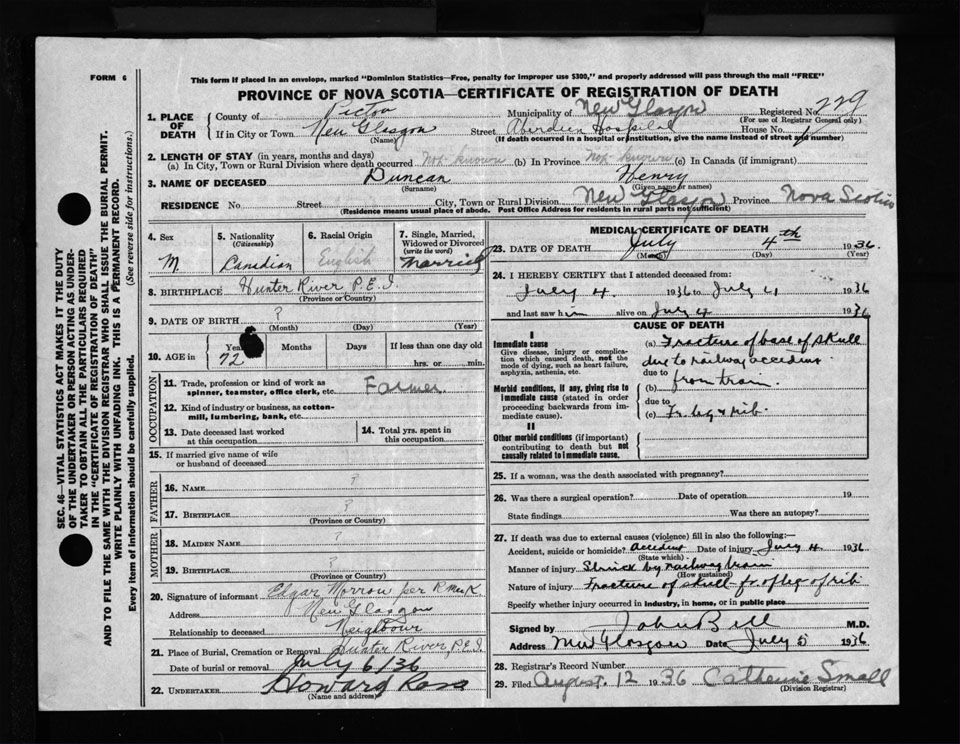 FORM 6
This form if placed in an envelope, marked "Dominion Statistics—Free, penalty for improper use $300," and properly addressed will pass through the mail "FREE"
PROVINCE OF NOVA SCOTIA—CERTIFICATE OF REGISTRATION OF DEATH
1. PLACE OF DEATH
County of Pictou Municipality of New Glasgow Registered No. 229
(For use of Registrar General only)
If in City or Town New Glasgow Street Aberdeen Hospital House No.
(Name) (If death occurred in a hospital or institution, give the name instead of street and number)
2. LENGTH OF STAY (in years, months and days)
(a) In City, Town or Rural Division where death occurred Not known (b) In Province Not known (c) In Canada (if immigrant)
3. NAME OF DECEASED Duncan Henry
(Surname) (Given name or names)
RESIDENCE No Street City, Town or Rural Division New Glasgow Province Nova Scotia
(Residence means usual place of abode. Post Office Address for residents in rural parts not sufficient)
4. Sex M.
5. Nationality (Citizenship) Canadian
6. Racial Origin English
7. Single, Married, Widowed or Divorced (write the word) Married
8. BIRTHPLACE Hunter River P.E.I
(Province or Country)
9. DATE OF BIRTH ?
(Month) (Day) (Year)
10. AGE in Years 72 Months Days If less than one day old
hrs. or min.
OCCUPATION
11. Trade, profession or kind of work as spinner, teamster, office clerk, etc. Farmer
12. Kind of industry or business, as cotton-mill, lumbering, bank, etc.
13. Date deceased last worked at this occupation
14. Total yrs. spent in this occupation
15. If married give name of wife or husband of deceased
FATHER
16. NAME ?
17. BIRTHPLACE ?
(Province or Country)
MOTHER
18. MAIDEN NAME ?
19. BIRTHPLACE ?
(Province or Country)
20. Signature of informant Elgar Morrow per
Address New Glasgow
Relationship to deceased Neighbour
21. Place of Burial, Cremation or Removal Hunter River, P.E.I.
Date of burial or removal July 6/36
22. UNDERTAKER Howard Ross
(Name and address)
MEDICAL CERTIFICATE OF DEATH
23. DATE OF DEATH July 4th 1936.
(Month) (Day) (Year)
24. I HEREBY CERTIFY that I attended deceased from:
July 4. 1936 to July 4 1936
and last saw him alive on July 4 1936
CAUSE OF DEATH
I
Immediate cause
Give disease, injury or complication which caused death, not the mode of dying, such as heart failure, asphyxia, asthenia, etc.
(a) Fracture of base of skull
due to railway accident
due to from train.
Morbid conditions, if any, giving rise to immediate cause (stated in order proceeding backwards from immediate cause).
(b)
due to
(c) Fr. leg & rib.
II
Other morbid conditions (if important) contributing to death but not causally related to immediate cause.
25. If a woman, was the death associated with pregnancy?
26. Was there a surgical operation? Date of operation 19
State findings Was there an autopsy?
27. If death was due to external causes (violence) fill in also the following:—
Accident, suicide or homicide? accident Date of injury July 4 1936
(State which)
Manner of injury Struck by railway train
(How sustained)
Nature of injury Fracture of skull fr. of leg of rib
Specify whether injury occurred in industry, in home, or in public place
Signed by John Bell M.D.
Address New Glasgow Date July 5 1936
28. Registrar's Record Number
29. Filed August. 12 1936 Catherine Small
(Division Registrar)
SEC. 46—VITAL STATISTICS ACT MAKES IT THE DUTY
OF THE UNDERTAKER OR PERSON ACTING AS UNDER-
TAKER TO OBTAIN ALL THE PARTICULARS REQUIRED
IN THE "CERTIFICATE OF REGISTRATION OF DEATH"
AND TO FILE THE SAME WITH THE DIVISION REGISTRAR WHO SHALL ISSUE THE BURIAL PERMIT.
WRITE PLAINLY WITH UNFADING INK. THIS IS A PERMANENT RECORD.
Every item of information should be carefully supplied. (See reverse side for instructions.)